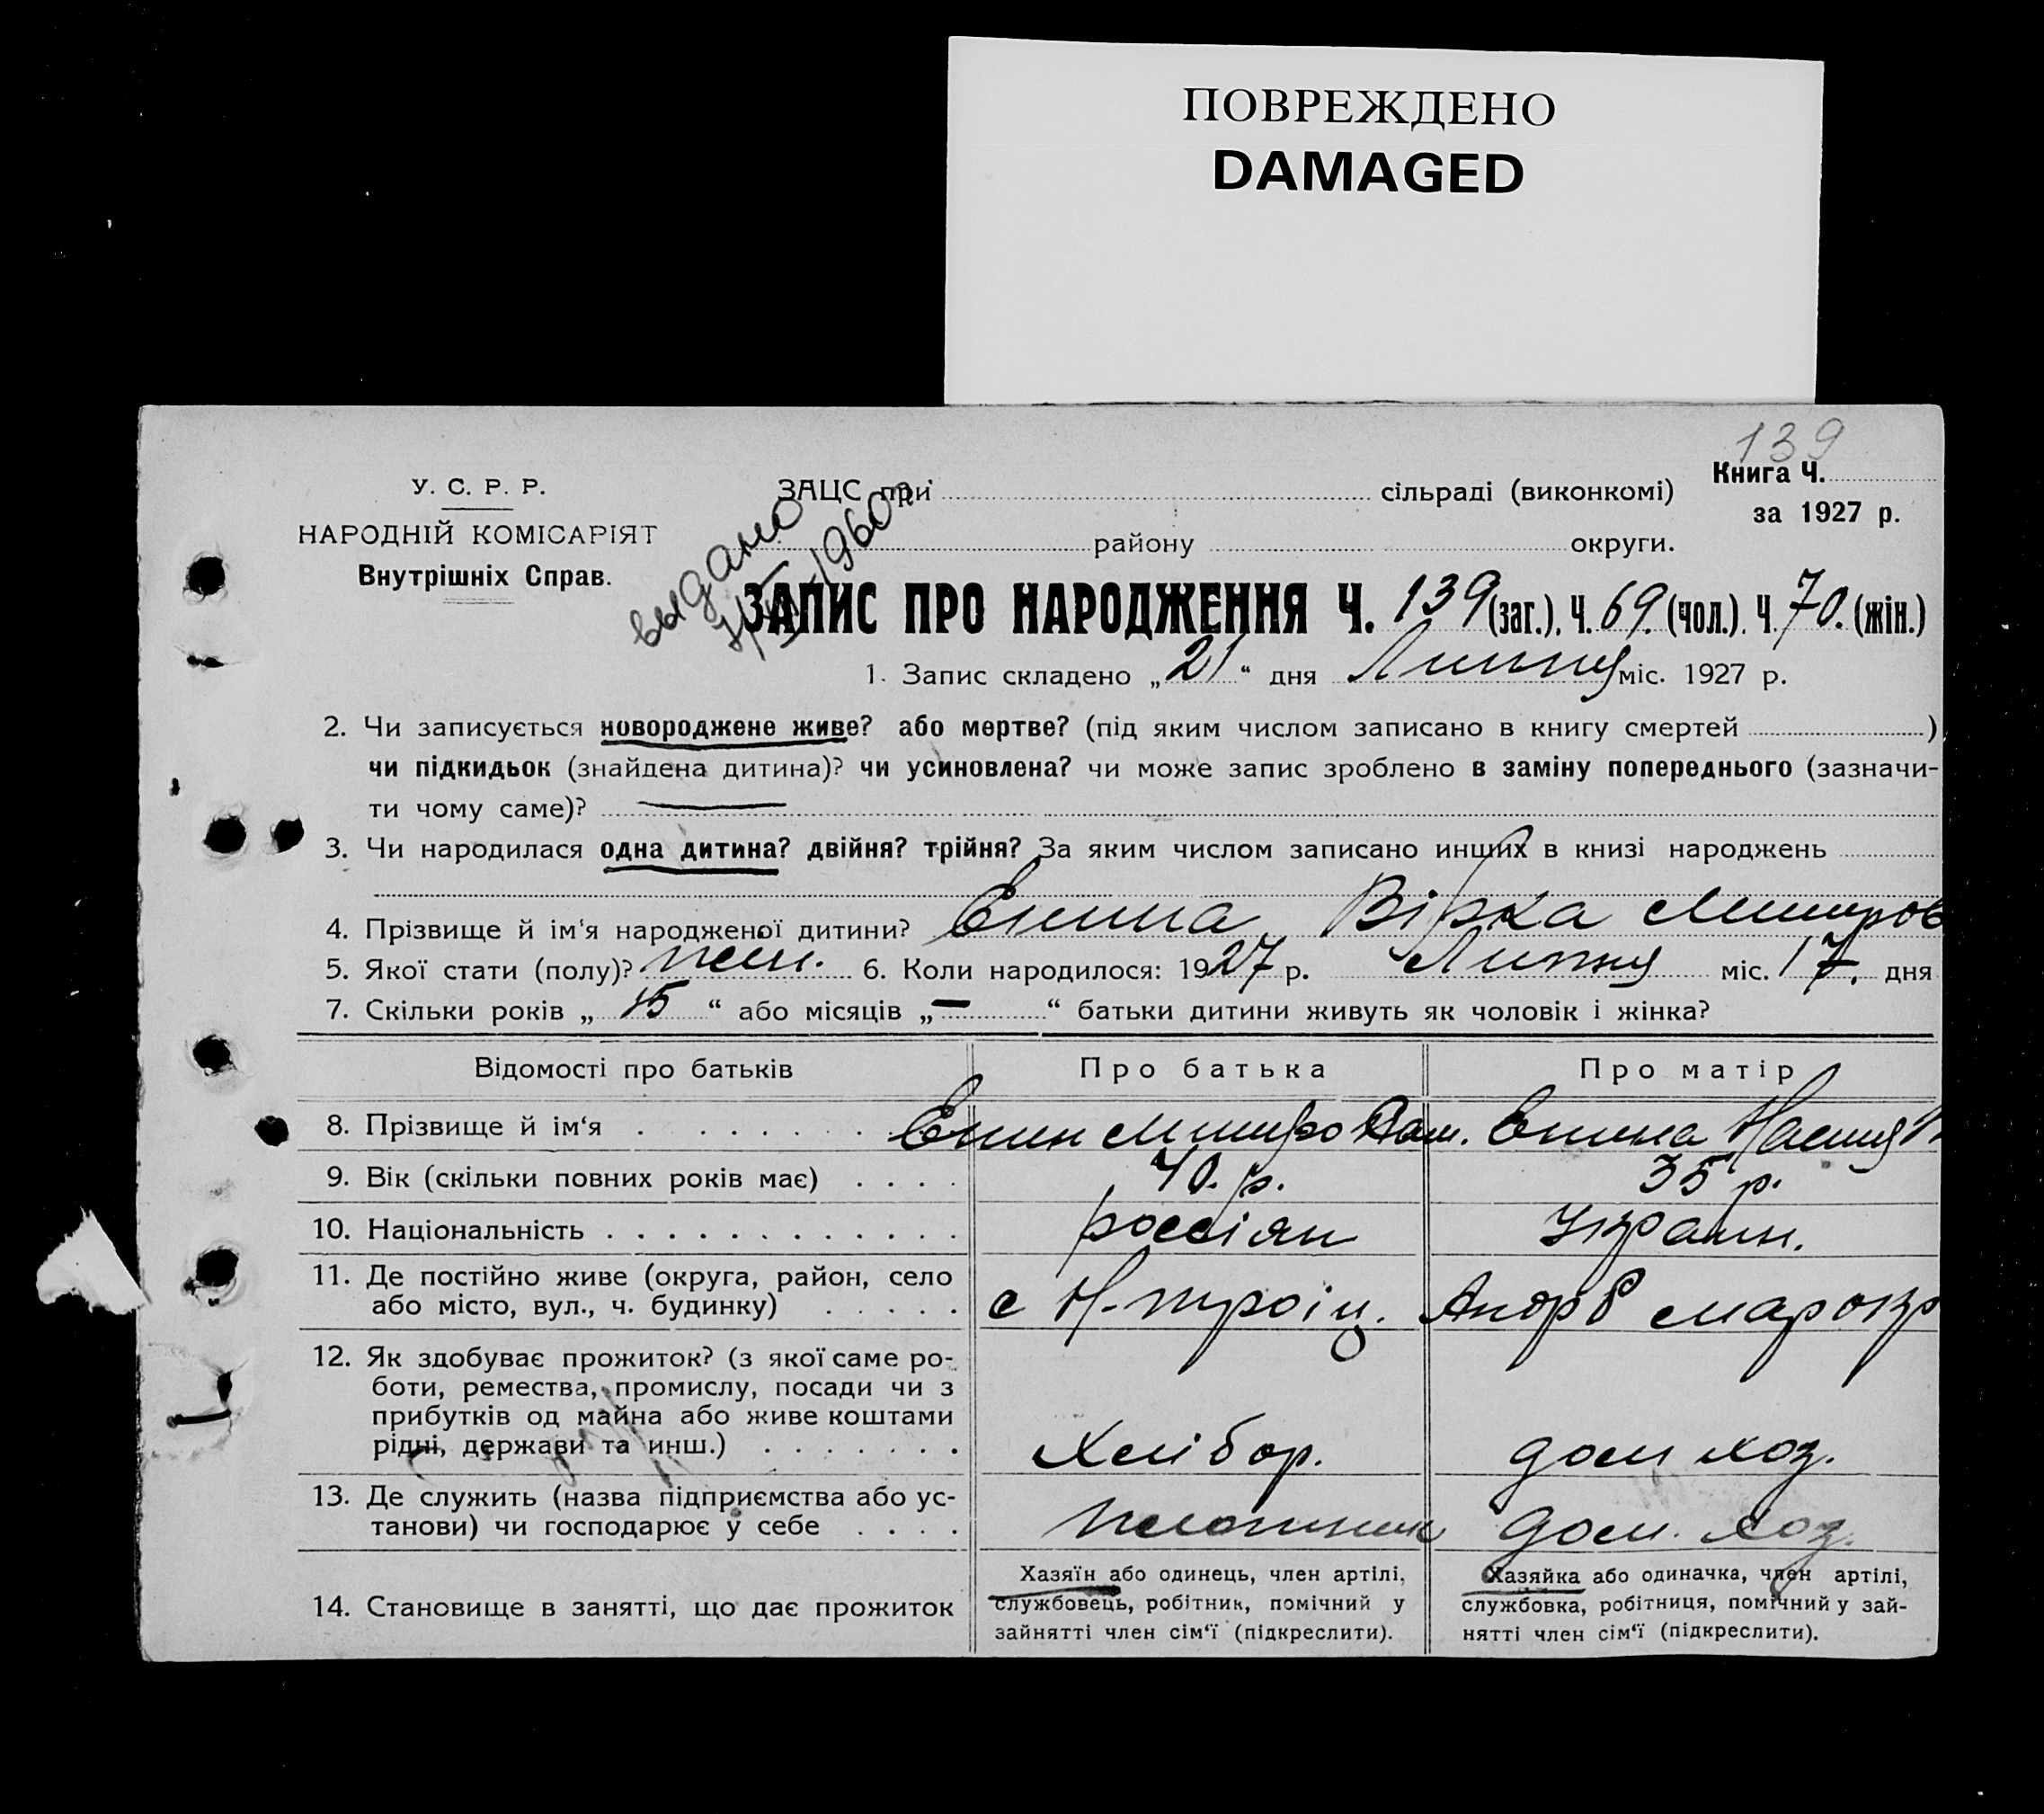 ПОВРЕЖДЕНО
DAMAGED
139
У. С. Р. Р.
НАРОДНІЙ КОМІСАРІЯТ
Внутрішніх Справ.
ЗАЦС при сільраді (виконкомі)
району округи.
Книга Ч.
за 1927 р.
выдано
1960 г.
ЗАПИС ПРО НАРОДЖЕННЯ Ч. 139 (заг.). Ч. 69. (чол.). Ч. 70. (жін.)
1. Запис складено „21“ дня Липня міс. 1927 р.
2. Чи записується новороджене живе? або мертве? (під яким числом записано в книгу смертей )
чи підкидьок (знайдена дитина)? чи усиновлена? чи може запис зроблено в заміну попереднього (зазначи-
ти чому саме)?
3. Чи народилася одна дитина? двійня? трійня? За яким числом записано инших в книзі народжень
4. Прізвище й ім‘я народженої дитини? Енина Вірка Мииров
5. Якої стати (полу)? жен. 6. Коли народилося: 1927 р. Липня міс. 17. дня
7. Скільки років „15“ або місяців „—“ батьки дитини живуть як чоловік і жінка?
Відомості про батьків Про батька Про матір
8. Прізвище й ім‘я . . . . . . . Енин Енина
9. Вік (скільки повних років має) . . . . 40. р. 35 р.
10. Національність . . . . . . . . . . . . россіян Украин.
11. Де постійно живе (округа, район, село
або місто, вул., ч. будинку) . . . . . с Н-троіц.
12. Як здобуває прожиток? (з якої саме ро-
боти, ремества, промислу, посади чи з
прибутків од майна або живе коштами
рідні, держави та инш.) . . . . . . . Хлібор. дом хоз.
13. Де служить (назва підприємства або ус-
танови) чи господарює у себе . . . . плотник дом. хоз.
14. Становище в занятті, що дає прожиток
Хазяїн або одинець, член артілі,
службовець, робітник, помічний у
зайнятті член сім‘ї (підкреслити).
Хазяйка або одиначка, член артілі,
службовка, робітниця, помічний у зай-
нятті член сім‘ї (підкреслити).